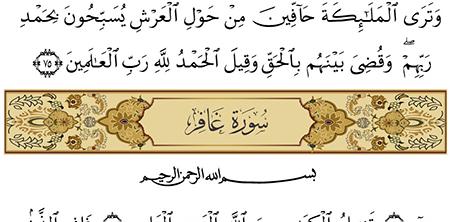 وَتَرَى ٱلْمَلَـٰٓئِكَةَ حَآفِّينَ مِنْ حَوْلِ ٱلْعَرْشِ يُسَبِّحُونَ بِحَمْدِ
رَبِّهِمْ ۖ وَقُضِىَ بَيْنَهُم بِٱلْحَقِّ وَقِيلَ ٱلْحَمْدُ لِلَّهِ رَبِّ ٱلْعَـٰلَمِينَ ﴿٧٥﴾
سُورَةُ غَافِرٍ
بسم الله الرحمن الرحيم